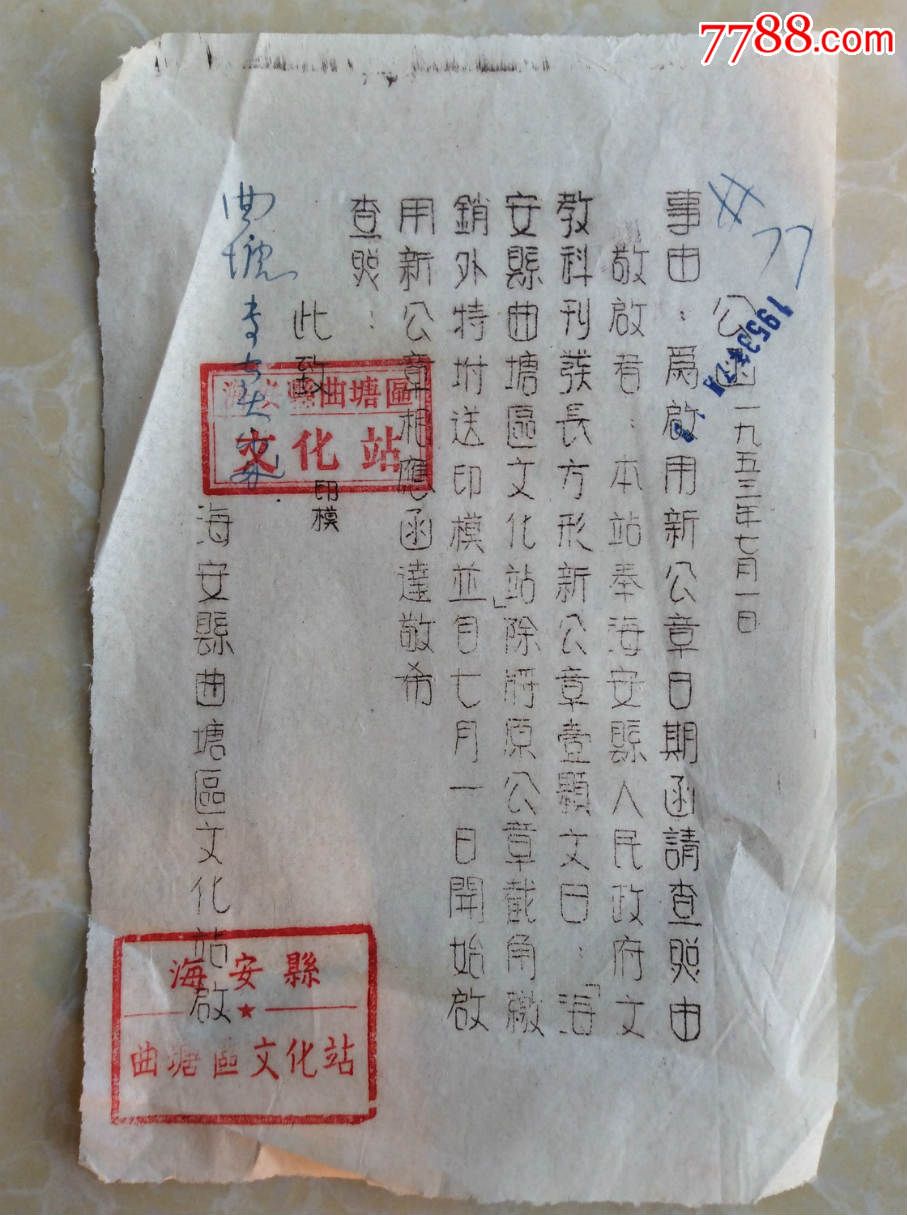 7788.com
#77
公函 一九五三年七月一日
事由：為啟用新公章日期函請查照由
敬啟者：本站奉海安縣人民政府文
教科刊發長方形新公章壹顆文曰：「海
安縣曲塘區文化站」除將原公章截角繳
銷外特坿送印模並自七月一日開始啟
用新公章相應函達敬希
查照：
此致
印模
海安縣曲塘區
文化站
曲塘
海安縣曲塘區文化站啟
海安縣
曲塘區文化站